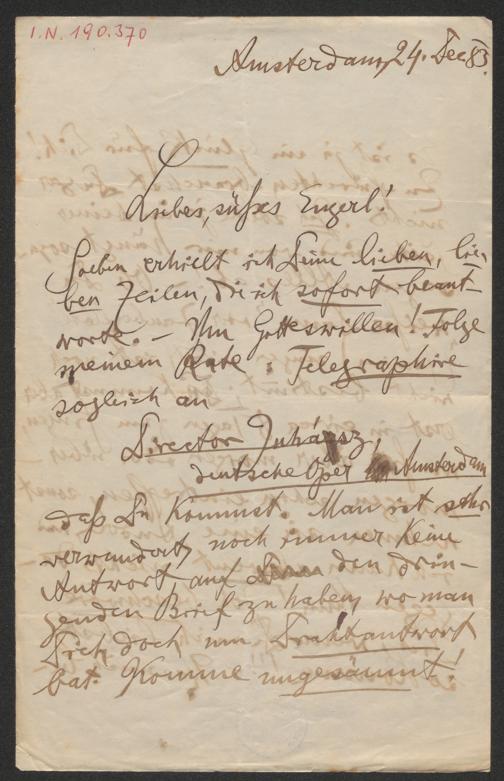 I.N. 190.370
Amsterdam, 24. Dec 83.
Liebes, süßes Engerl!
Soeben erhielt ich Deine lieben, lie-
ben Zeilen, die ich sofort beant
worte. – Um Gotteswillen! Folge
meinem Rate: Telegraphire
sogleich an
Director Juhász,
deutsche Oper Amsterdam
daß Du kommst. Man ist sehr
verwundert, noch immer keine
Antwort auf den drin-
genden Brief zu haben, wo man
Dich doch um Drahtantwort
bat. Komme ungesäumt!